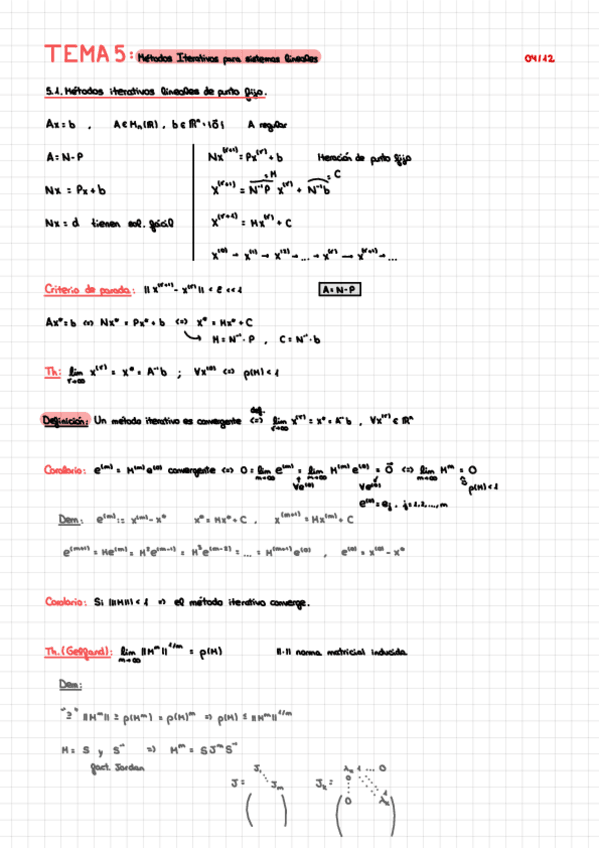 TEMA 5: Métodos Iterativos para sistemas lineales
04/12
5.1. Métodos iterativos lineales de punto fijo.
Ax = b , A ∈ Mn(ℝ) , b ∈ ℝⁿ \ {0⃗} A regular
A = N - P
Nx = Px + b
Nx = d tienen sol. fácil
Nx^(r+1) = Px^(r) + b Iteración de punto fijo
=M = C
x^(r+1) = N⁻¹P x^(r) + N⁻¹b
x^(r+1) = Mx^(r) + C
x^(0) → x^(1) → x^(2) → ... → x^(r) → x^(r+1) → ...
Criterio de parada: ||x^(r+1) - x^(r)|| < ε <<1
A = N - P
Ax* = b ⇔ Nx* = Px* + b ⇔ x* = Mx* + C
M = N⁻¹·P , C = N⁻¹·b
Th: lim x^(r) = x* = A⁻¹b ; ∀x^(0) ⇔ ρ(M) < 1
r→∞
def.
Definición: Un método iterativo es convergente ⇔ lim x^(r) = x* = A⁻¹b , ∀x^(r) ∈ ℝⁿ
r→∞
Corolario: e^(m) = M^(m)e^(0) convergente ⇔ 0 = lim e^(m) = lim M^(m)e^(0) = 0⃗ ⇔ lim M^m = 0
m→∞ m→∞ m→∞
∀e^(0) ∀e^(0) ρ(M) < 1
e^(0) = e_j , j = 1,2,...,m
Dem: e^(m) := x^(m) - x* x* = Mx* + C , x^(m+1) = Mx^(m) + C
e^(m+1) = Me^(m) = M²e^(m-1) = M³e^(m-2) = ... = M^(m+1)e^(0) , e^(0) = x^(0) - x*
Corolario: Si ||M|| < 1 ⇒ el método iterativo converge.
Th. (Gelfand): lim ||M^m||^1/m = ρ(M) ||·|| norma matricial inducida
m→∞
Dem:
"≥" ||M^m|| ≥ ρ(M^m) = ρ(M)^m ⇒ ρ(M) ≤ ||M^m||^1/m
M = S J S⁻¹ ⇒ M^m = S J^m S⁻¹
fact. Jordan
J = ( J₁ ⋱ J_m )
J_k = ( λ_k 1 ... 0
0 ⋱ ⋱ 1
0 λ_k )